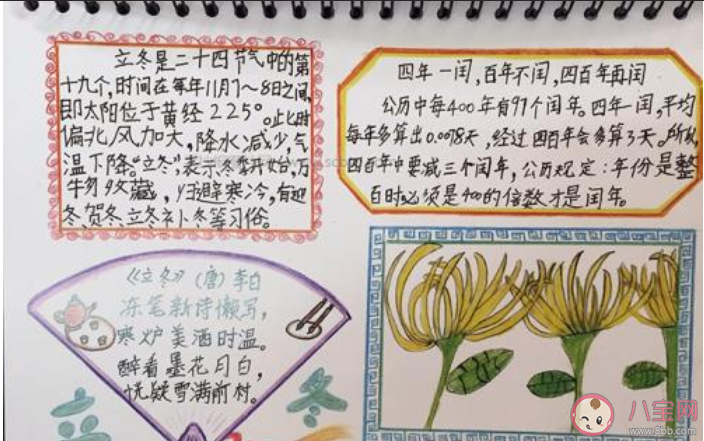 立冬是二十四节气中的第
十九个,时间在每年11月7~8日之间,
即太阳位于黄经225°。此时
偏北风加大,降水减少,气
温下降。“立冬”,表示冬季开始,万
物收藏,归避寒冷,有迎
冬贺冬立冬补冬等习俗。
四年一闰,百年不闰,四百年再闰
公历中每400年有97个闰年。四年一闰,平均
每年多算出0.0078天,经过四百年会多算3天。所以
四百年中要减三个闰年,公历规定:年份是整
百时必须是400的倍数才是闰年。
《立冬》(唐)李白
冻笔新诗懒写,
寒炉美酒时温。
醉看墨花月白,
恍疑雪满前村。
立
冬
八宝网
www.8bb.com